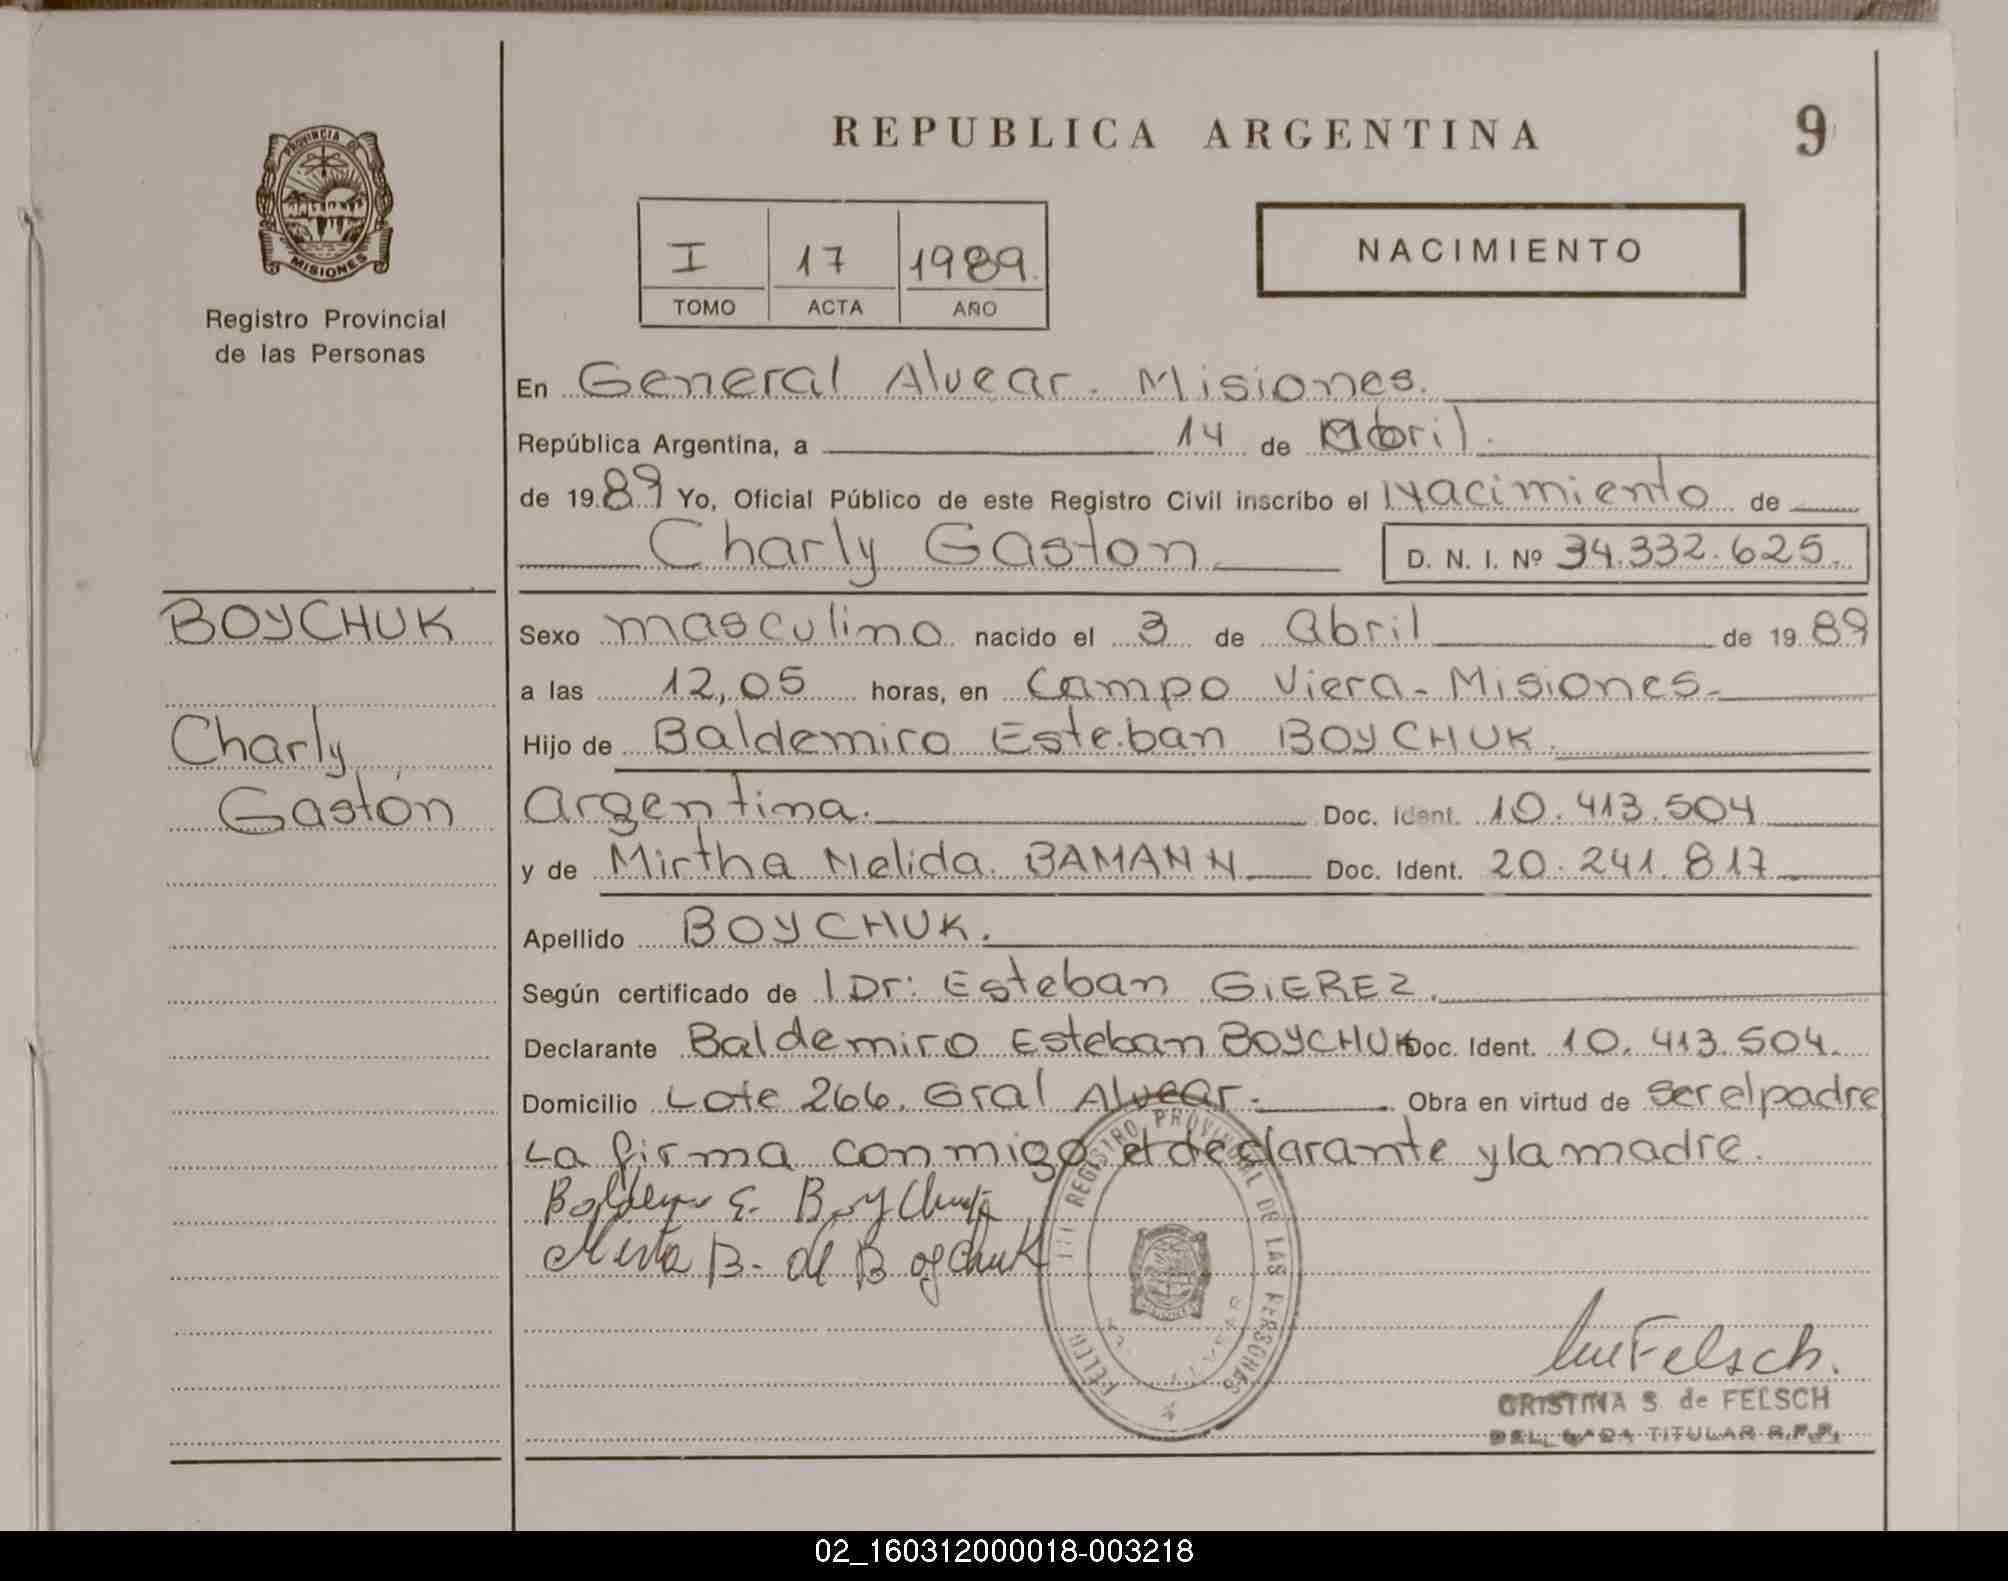 REPUBLICA ARGENTINA
9
PROVINCIA DE
MISIONES
Registro Provincial
de las Personas
I 17 1989.
TOMO ACTA AÑO
NACIMIENTO
En General Alvear. Misiones.
República Argentina, a 14 de Abril.
de 1989 Yo, Oficial Público de este Registro Civil inscribo el Nacimiento de
Charly Gaston D. N. I. Nº 34.332.625.
BOYCHUK
Charly
Gastón
Sexo masculino nacido el 3 de abril de 1989
a las 12,05 horas, en Campo Viera - Misiones.
Hijo de Baldemiro Esteban BOYCHUK.
Argentina. Doc. Ident. 10.413.504
y de Mirtha Nelida BAMANN Doc. Ident. 20.241.817
Apellido BOYCHUK.
Según certificado de Dr: Esteban GIEREZ.
Declarante Baldemiro Esteban BOYCHUK Doc. Ident. 10.413.504.
Domicilio Lote 266. Gral Alvear. Obra en virtud de ser el padre
La firma conmigo el declarante y la madre.
E. Boychuk
B. de Boychuk
REGISTRO PROVINCIAL DE LAS PERSONAS
Felsch.
CRISTINA S. de FELSCH
TITULAR R.P.P.
02_160312000018-003218